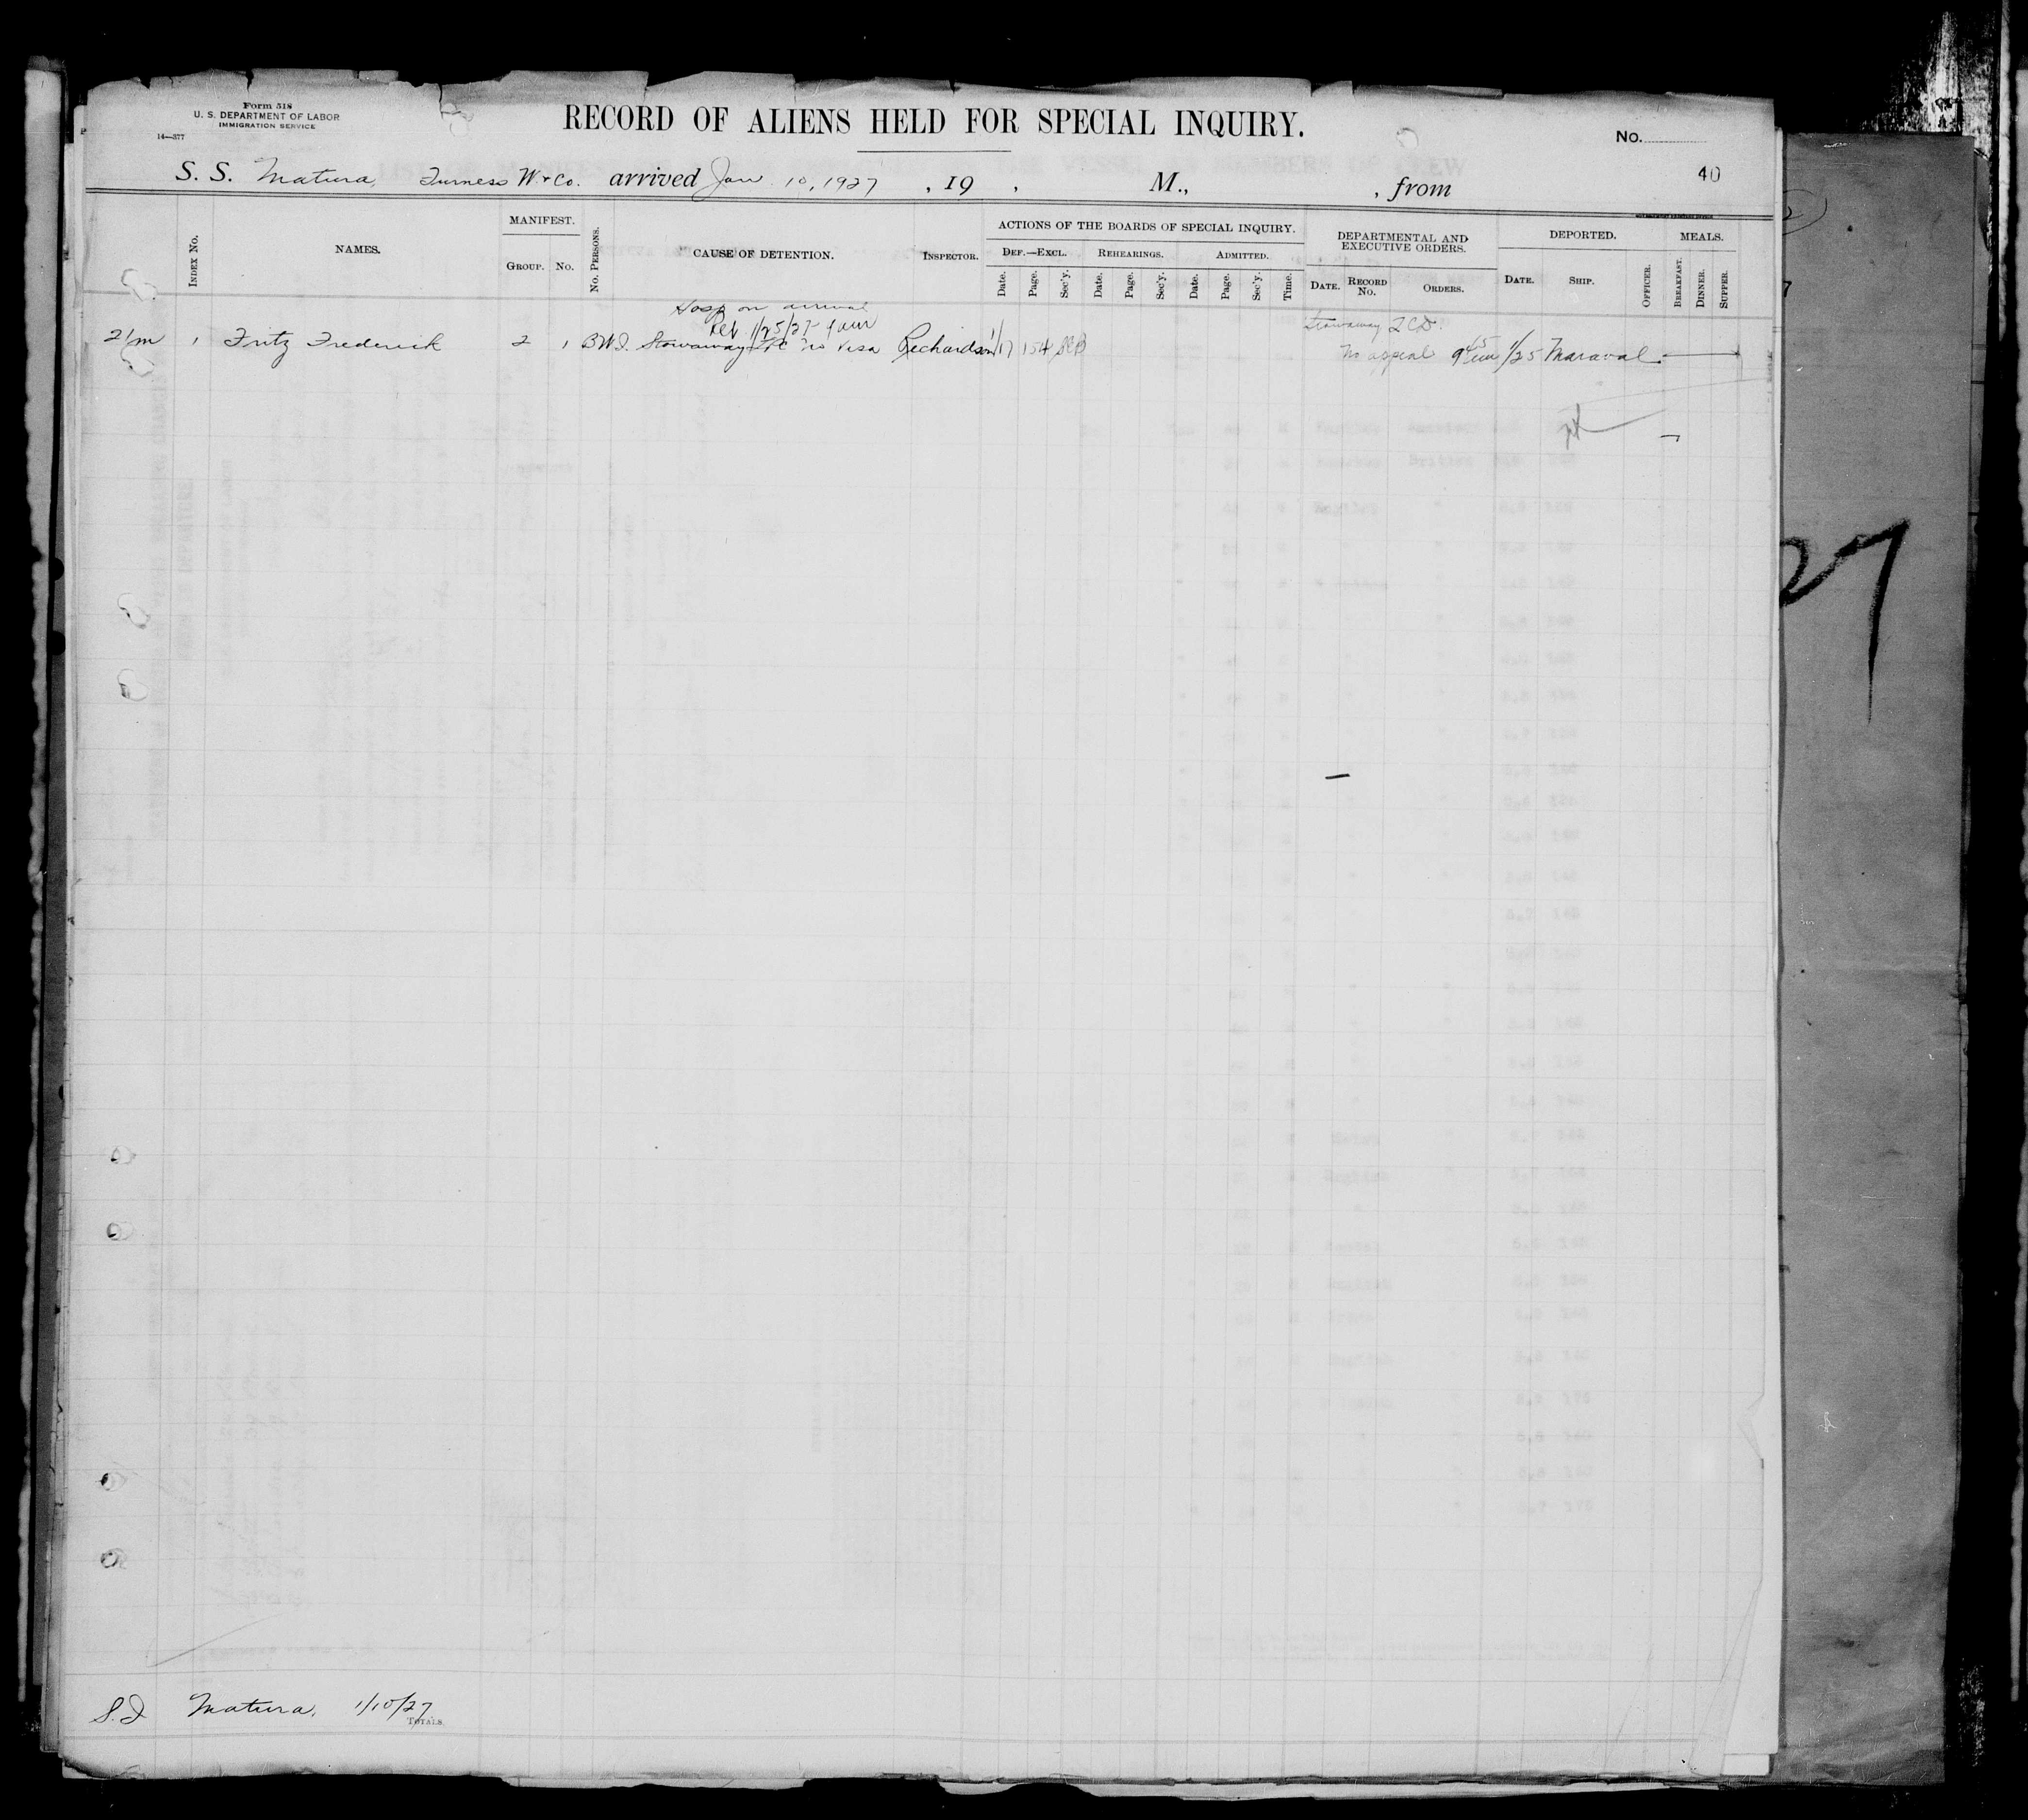 Form 518
U. S. DEPARTMENT OF LABOR
IMMIGRATION SERVICE
14—377
RECORD OF ALIENS HELD FOR SPECIAL INQUIRY.
No.
40
S. S. Matura, Furness W. & Co. arrived Jan. 10, 1927 , 19 , M., , from
INDEX NO.
NAMES.
MANIFEST.
GROUP. NO.
NO. PERSONS.
CAUSE OF DETENTION.
INSPECTOR.
ACTIONS OF THE BOARDS OF SPECIAL INQUIRY.
DEF.—EXCL. REHEARINGS. ADMITTED.
Date. Page. Sec'y. Date. Page. Sec'y. Date. Page. Sec'y. Time.
DEPARTMENTAL AND
EXECUTIVE ORDERS.
DATE. RECORD NO. ORDERS.
DEPORTED.
DATE. SHIP. OFFICER.
MEALS.
BREAKFAST. DINNER. SUPPER.
Hosp on arrival
1/25/27
Stowaway
21 m 1 Fritz Frederick 2 1 B.W.I. Stowaway no visa Richardson 1/17 154 No appeal 9 45 am 1/25 Maraval
27
S.I Matura, 1/10/27
TOTALS